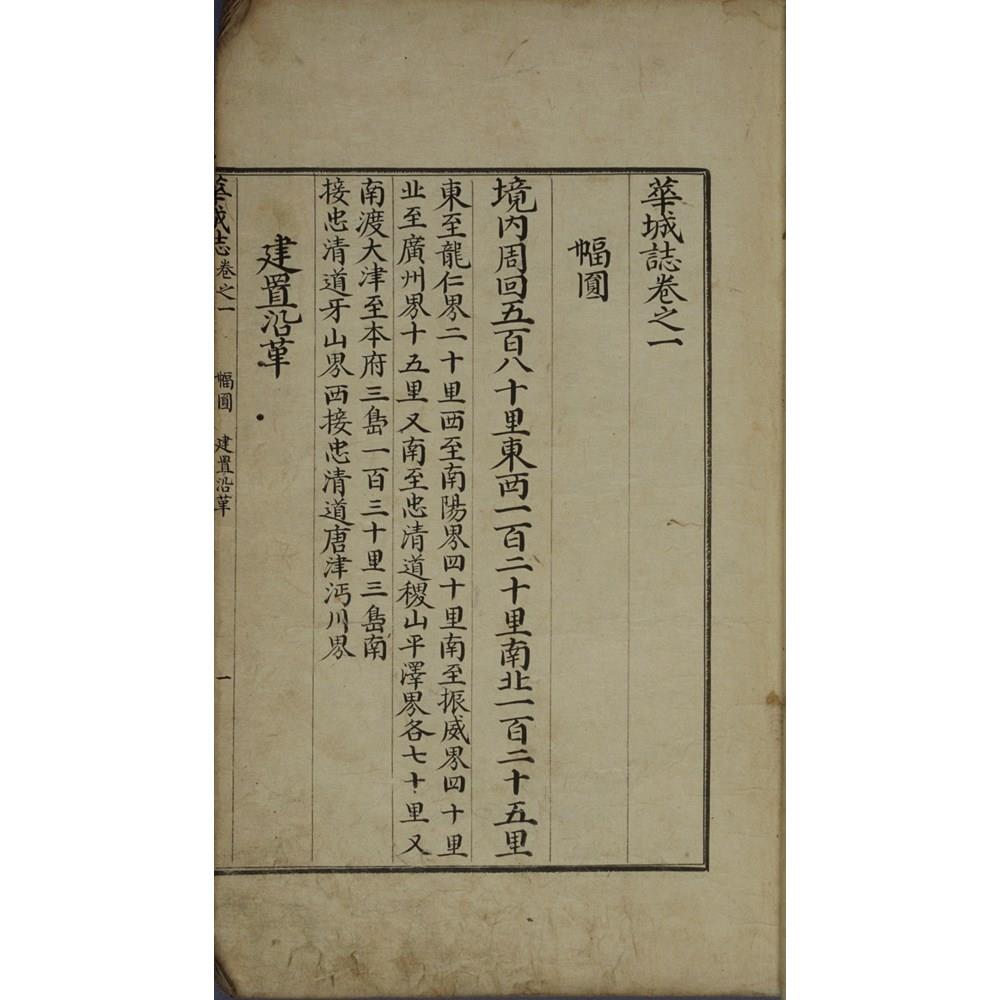 華城誌卷之一
幅圓
境內周回五百八十里東西一百二十里南北一百二十五里
東至龍仁界二十里西至南陽界四十里南至振威界四十里
北至廣州界十五里又南至忠清道稷山平澤界各七十里又
南渡大津至本府三島一百三十里三島南
接忠清道牙山界西接忠清道唐津沔川界
建置沿革
華城志卷之一 幅圓 建置沿革 一